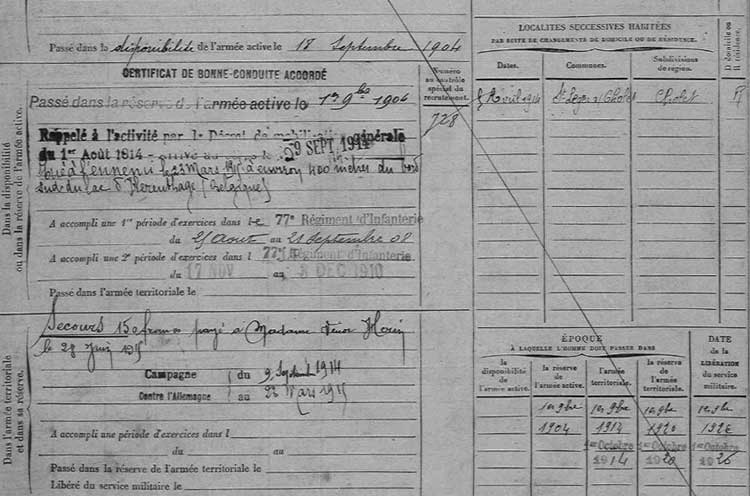 Passé dans la disponibilité de l'armée active le 18 Septembre 1904
CERTIFICAT DE BONNE-CONDUITE ACCORDÉ
Passé dans la réserve de l'armée active le 1er 9bre 1904
Rappelé à l'activité par le Décret de mobilisation générale
du 1er Août 1914 – arrivé au corps le 9 SEPT. 1914
Tué à l'ennemi le 23 Mars 1915 à environ 400 mètres du bord
sud du lac d'Herenthage (Belgique)
A accompli une 1re période d'exercices dans le 77e Régiment d'Infanterie
du 25 Aout au 21 Septembre 08
A accompli une 2e période d'exercices dans l 77e Régiment d'Infanterie
du 17 NOV au 3 DEC 1910
Passé dans l'armée territoriale le
Dans la disponibilité
ou dans la réserve de l'armée active.
Numéro
au contrôle
spécial du
recrutement.
728
LOCALITÉS SUCCESSIVES HABITÉES
PAR SUITE DE CHANGEMENTS DE DOMICILE OU DE RÉSIDENCE.
Dates.
Communes.
Subdivisions
de région.
D domicile ou
R résidence.
Avril 1914 St Léger s/ Cholet Cholet R
Secours 150 francs payé à Madame Veuve
le 28 Juin 1915
Campagne du 9 Septembre 1914
Contre l'Allemagne au 23 Mars 1915
A accompli une période d'exercices dans l
du au
Passé dans la réserve de l'armée territoriale le
Libéré du service militaire le
Dans l'armée territoriale
et dans sa réserve.
ÉPOQUE
À LAQUELLE L'HOMME DOIT PASSER DANS
la
disponibilité
de
l'armée active.
la réserve
de
l'armée active.
l'armée
territoriale.
la réserve
de
l'armée
territoriale.
DATE
de la
LIBÉRATION
du service
militaire.
1er 9bre 1er 9bre 1er 9bre 1er 9bre
1904 1914 1920 1926
1er Octobre 1er Octobre 1er Octobre
1914 1920 1926